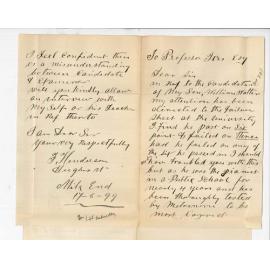 To Professor Ives Esq
Dear Sir
in Ref to the candidature
of My Son, William Walter
my attention has been
directed to the Failure
Sheet at the University
I find he past on Six
and failed on three
had he failed on any of
the Six he passed in I should
not have troubled you with this
but as he was the pianist
in a Public School for
nearly 4 years and has
been thoroughly tested
by Metronome to be
most correct
I Feel Confident there
is a misunderstanding
between Candidate
& Examiner
will you kindly allow
an interview with
My Self or his Teacher
in Ref thereto
I am Dear Sir
Yours very Respectfully
F. Henderson
Hughes St
Mile End
17-6-99